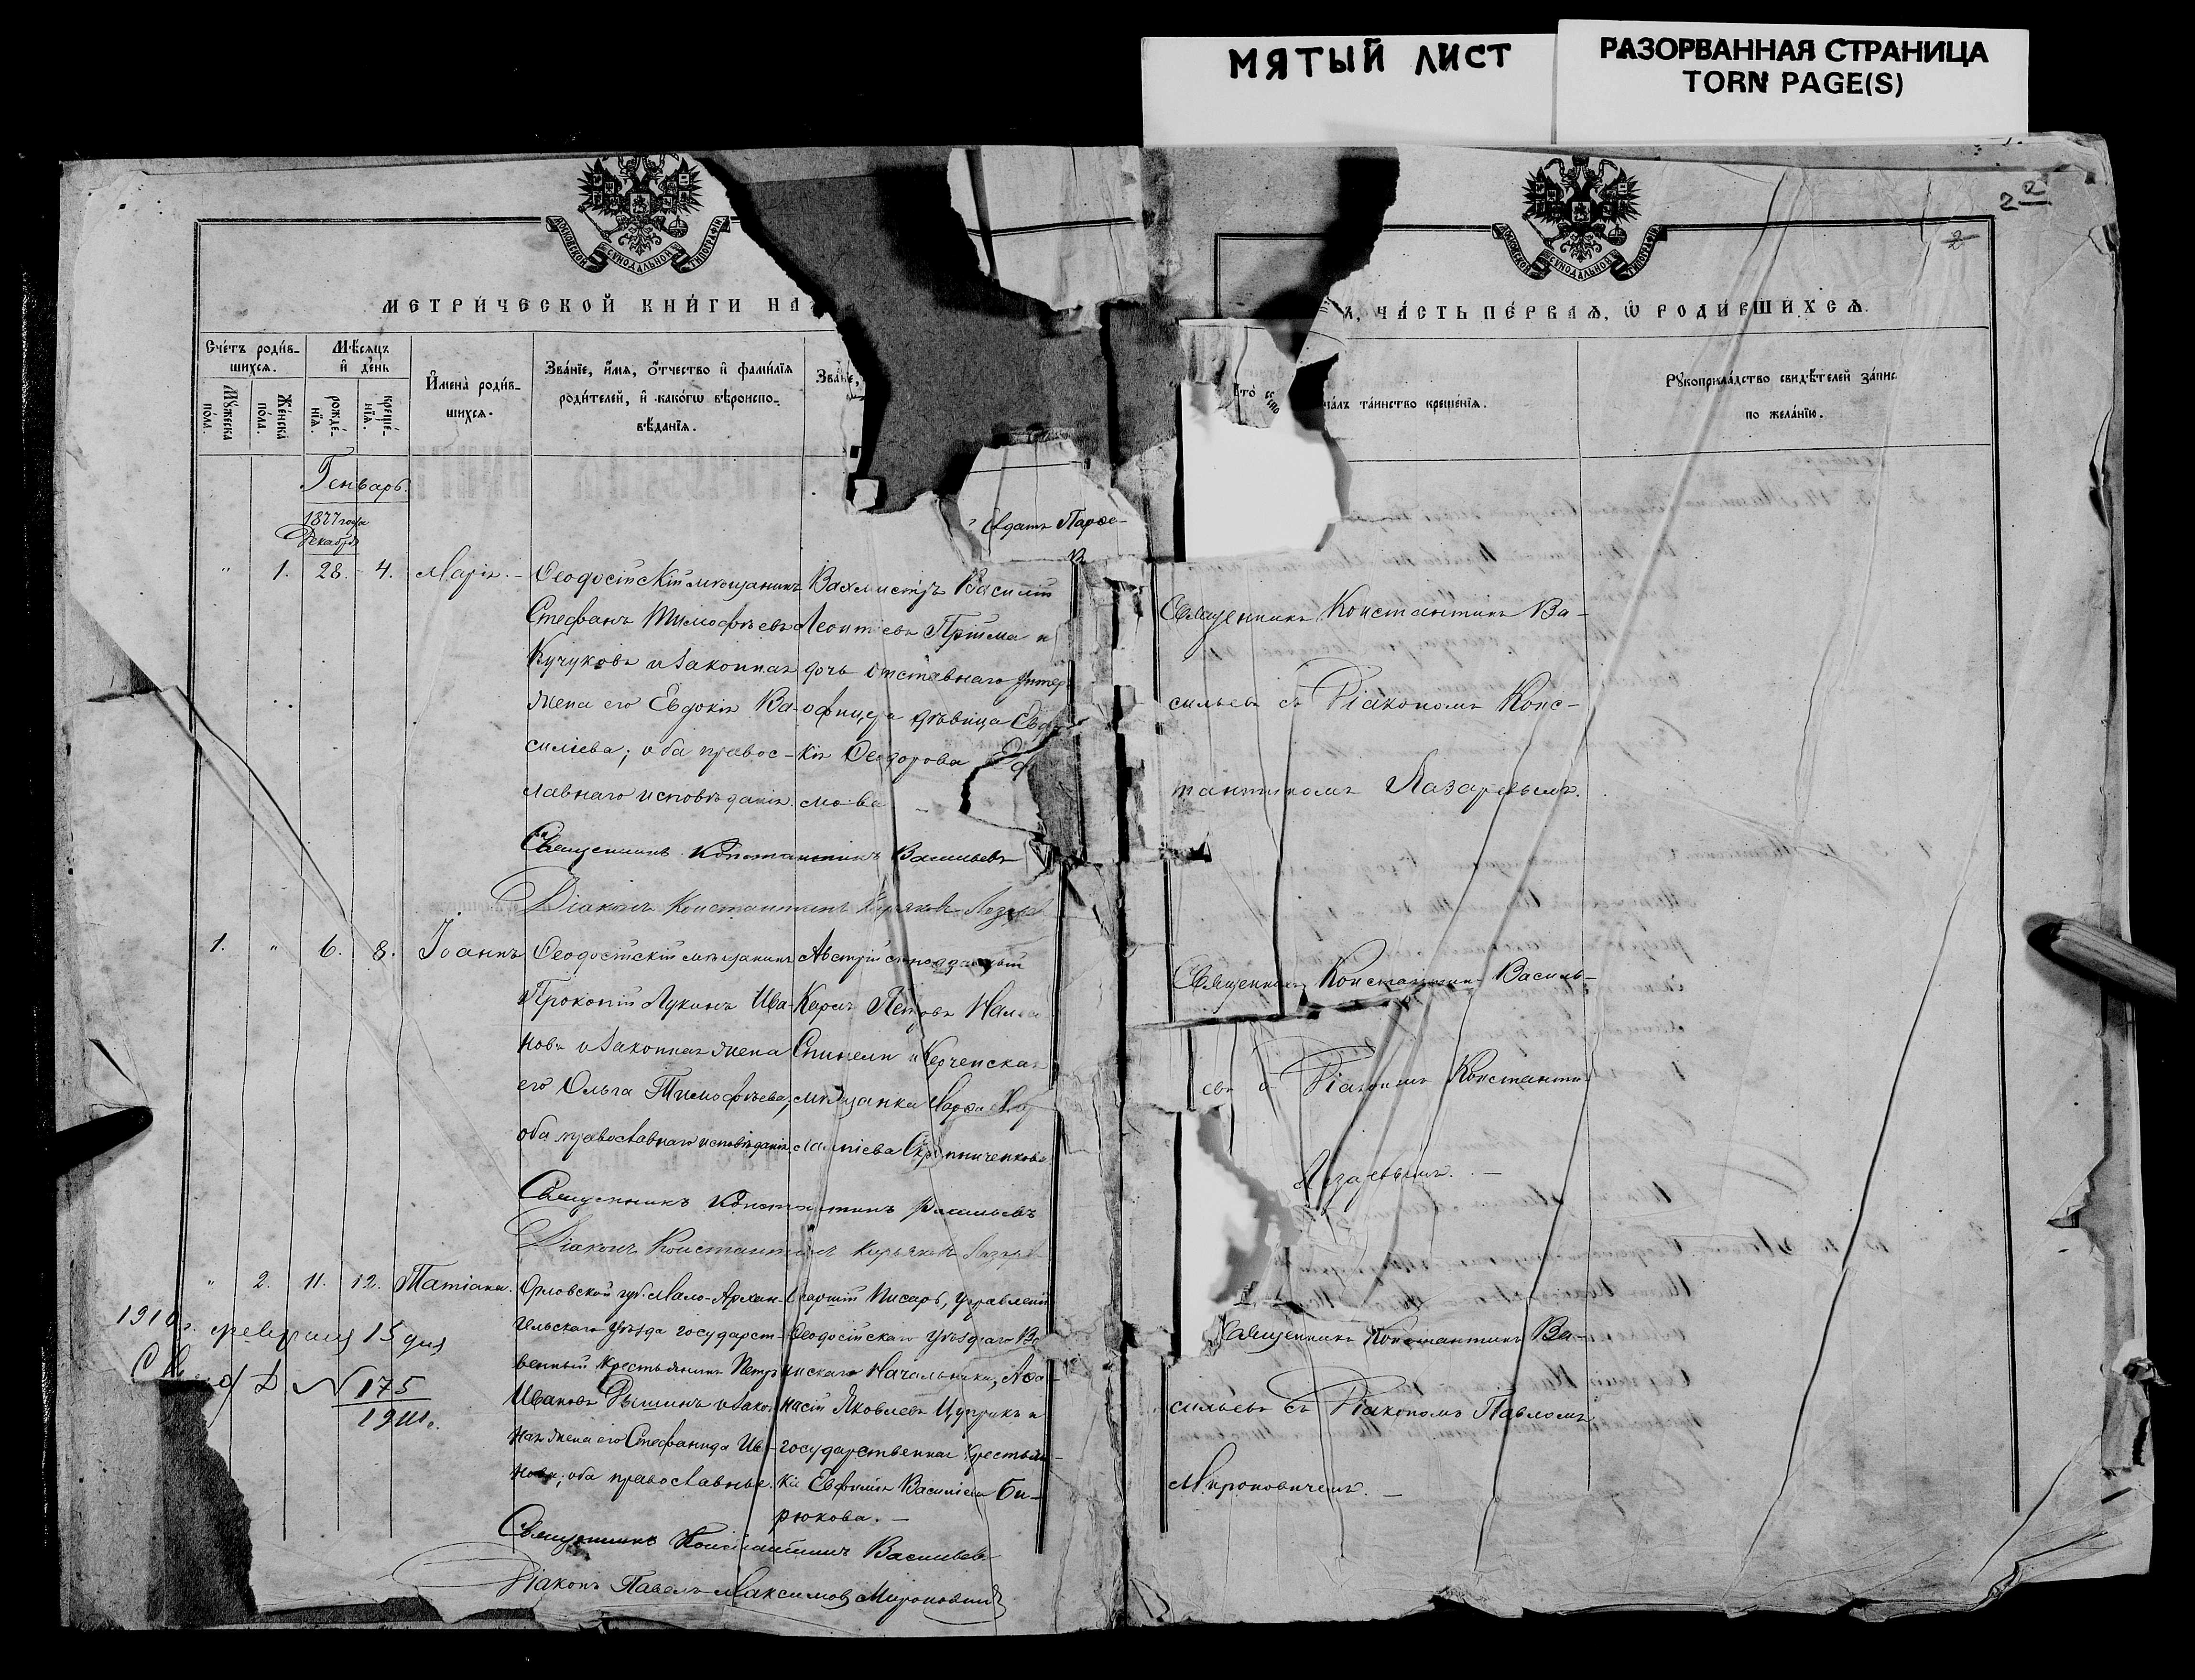 МЯТЫЙ ЛИСТ
РАЗОРВАННАЯ СТРАНИЦА
TORN PAGE(S)
2
2
2
МОСКОВСКОЙ СѴНОДАЛЬНОЙ ТИПОГРАФІИ
МОСКОВСКОЙ СѴНОДАЛЬНОЙ ТИПОГРАФІИ
МЕТРИ́ЧЕСКОЙ КНИ́ГИ НА
ЧА́СТЬ ПЕ́РВАѦ, Ѡ РОДИ́ВШИХСѦ.
Сче́тъ роди́в-
шихсѧ.
Мѣ́сѧцъ
и҆ де́нь
Мꙋ́жеска по́ла.
Же́нска по́ла.
рожде́-
нїѧ.
креще́-
нїѧ.
И҆мена̀ роди́в-
шихсѧ.
Зва́нїе, и҆́мѧ, ѻ҆́тчество и҆ фами́лїѧ
роди́телей, и҆ како́гѡ вѣроиспо-
вѣ́данїѧ.
Зва́нїе,
Кто̀
та́инство креще́нїѧ.
Рꙋкоприкла́дство свидѣ́телей за́пис
по жела́нїю.
Генварь.
1877 года
Декабря
" 1. 28. 4. Марія.
Ѳеодосійскій мѣщанинъ
Стефанъ Тимофѣевъ
Кучуковъ и законная
жена его Евдокія Ва-
силіева; оба правос-
лавнаго исповѣданія.
Вахмистръ Василій
Леонтіевъ Прійма и
дочь отставнаго унтер
офицера дѣвица Евдо
кія Ѳеодорова
мова
Священникъ Константинъ Ва-
сильевъ съ Діакономъ Конс-
тантиномъ Лазаревымъ.
Священникъ Константинъ Васильевъ
Діаконъ Константинъ Кирьяковъ Лазарев
1. " 6. 8. Іоаннъ
Ѳеодосійскій мѣщанинъ
Прокопій Лукинъ Ива-
новъ и законная жена
его Ольга Тимофѣева;
оба православнаго исповѣданія.
Австрійскоподданный
Карлъ Петровъ
Спинели и Керченская
мѣщанка Марѳа
Священникъ Константинъ Василь-
евъ съ Діакономъ Константи-
Лазаревымъ. —
Священникъ Константинъ Васильевъ
Діаконъ Константинъ Кирьяковъ Лазарев
" 2. 11. 12. Татіана.
Орловской губ. Мало-Архан-
гельскаго уѣзда государст-
венный крестьянинъ Петръ
Ивановъ и закон-
ная жена его Стефанида Ив
нова; оба православные.
Старшій Писарь, Управленія
Ѳеодосійскаго уѣзднаго Во
инскаго Начальника, Аѳа-
насій Яковлевъ Цуприкъ и
государственная крестьян-
ка Евфимія Василіева Би-
рюкова. —
Священникъ Константинъ Ва-
сильевъ съ Діакономъ Павломъ
Мироновичемъ. —
1910 г. февраля 15 дня
№ 175
1910.
Священникъ Константинъ Васильевъ
Діаконъ Павелъ Максимовъ Мироновичъ